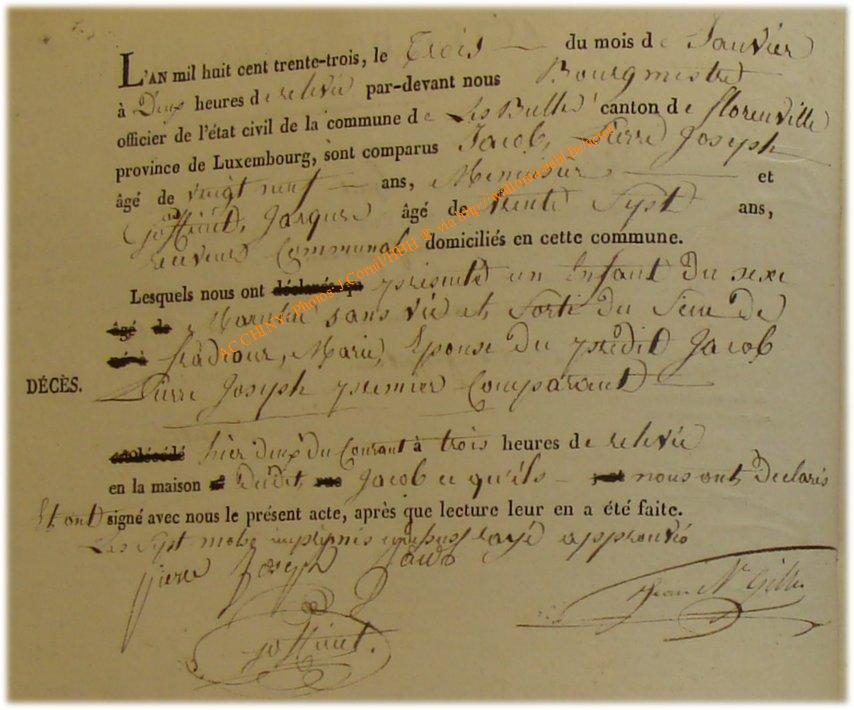 L'AN mil huit cent trente-trois, le trois du mois de Janvier
à Deux heures de relevée par-devant nous Bourgmestre
officier de l'état civil de la commune de Les Bulles canton de florenville
province de Luxembourg, sont comparus Jacob, Pierre Joseph
âgé de vingt neuf ans, Menuisier et
Goffinet, Jacques âgé de trente Sept ans,
receveur Communal domiciliés en cette commune.
Lesquels nous ont déclaré qu présenté un Enfant du sexe
âgé de Masculin sans vie et Sorti du Sein de
né à Marie, Epouse du prédit Jacob
DÉCÈS. Pierre Joseph premier Comparant
est décédé hier deux du Courant à trois heures de relevée
en la maison du dit, Jacob ce qu'ils nous ont Declarés
Et ont signé avec nous le présent acte, après que lecture leur en a été faite.
Les Sept mots imprimés rayé approuvés
pierre Joseph Jacob
Jean Ns Gilles
goffinet.
ACCHINY Photos J.Cornil/HBH @ via http://